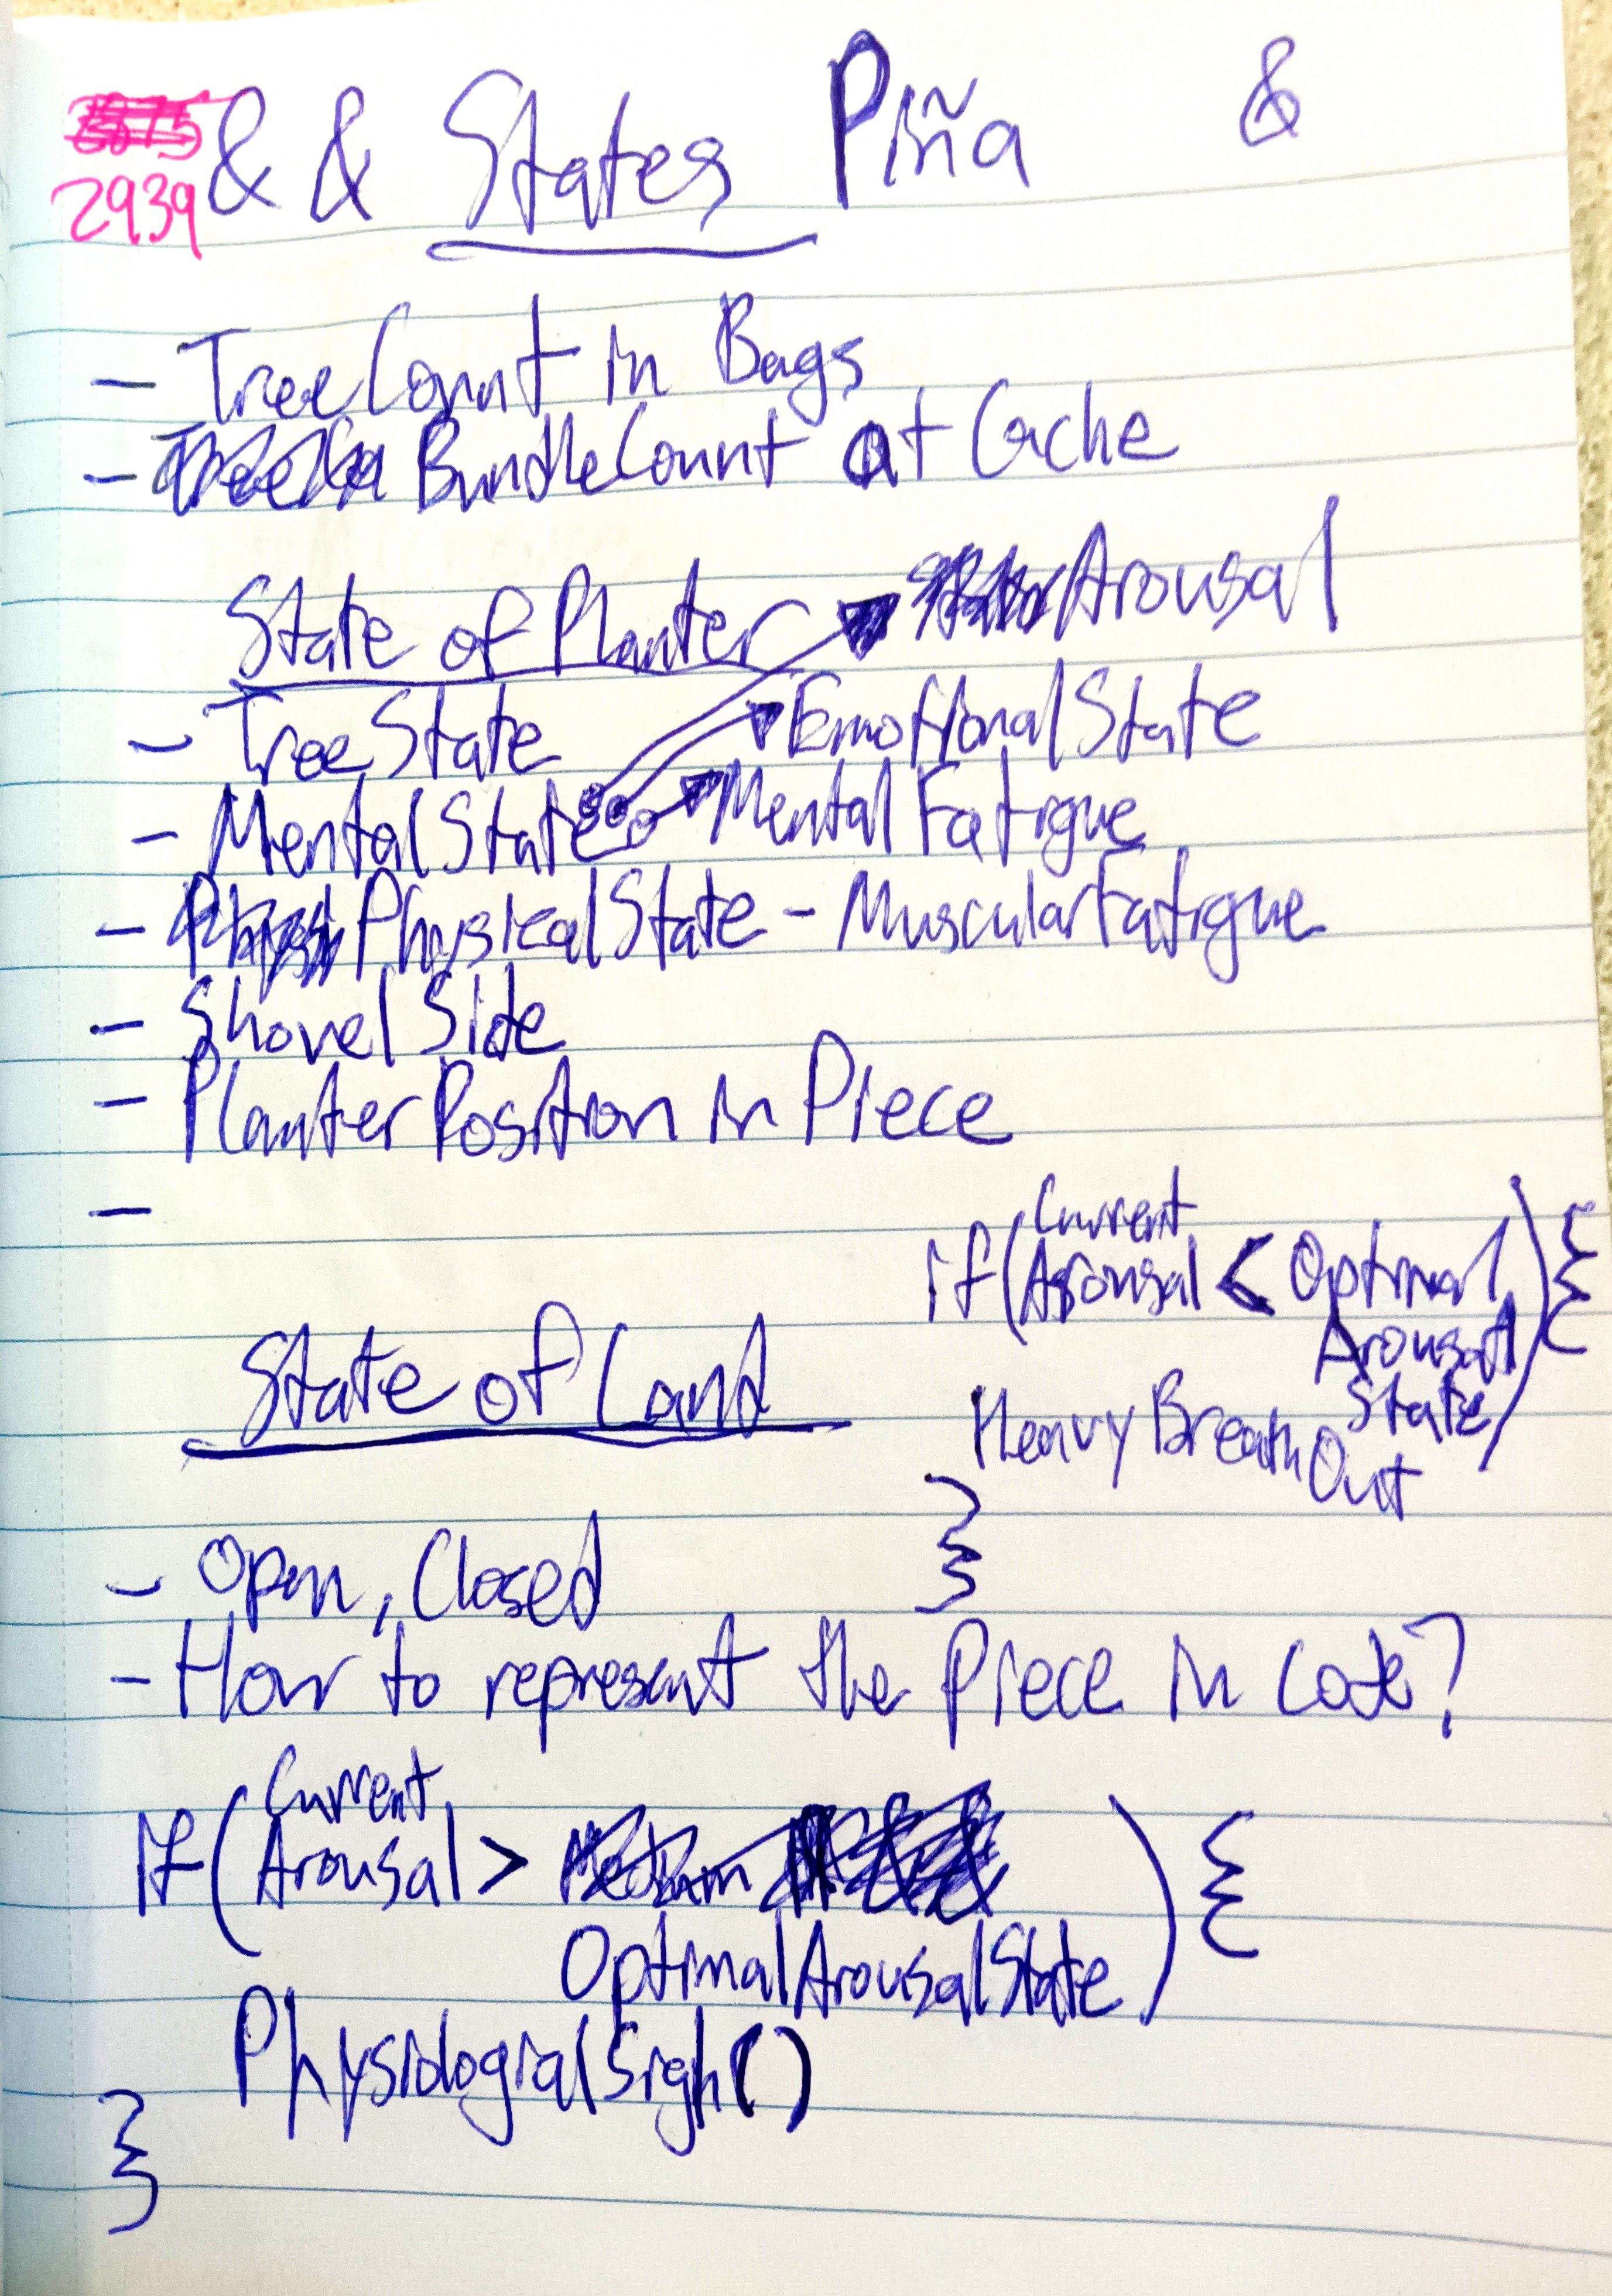 2939 & & States Piña &
- TreeCount in Bags
- BundleCount at Cache
State of Planter
Arousal
- TreeState
EmotionalState
- MentalState
MentalFatigue
- PhysicalState - MuscularFatigue
- Shovel Side
- Planter Position in Piece
-
if (Current Arousal < Optimal Arousal State) {
HeavyBreathOut
}
State of Land
- Open, Closed
- How to represent the Piece in Code?
If (Current Arousal >
OptimalArousalState) {
PhysiologialSigh()
}